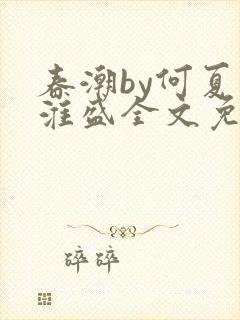 春潮by何夏
淮盛全文免
碎碎